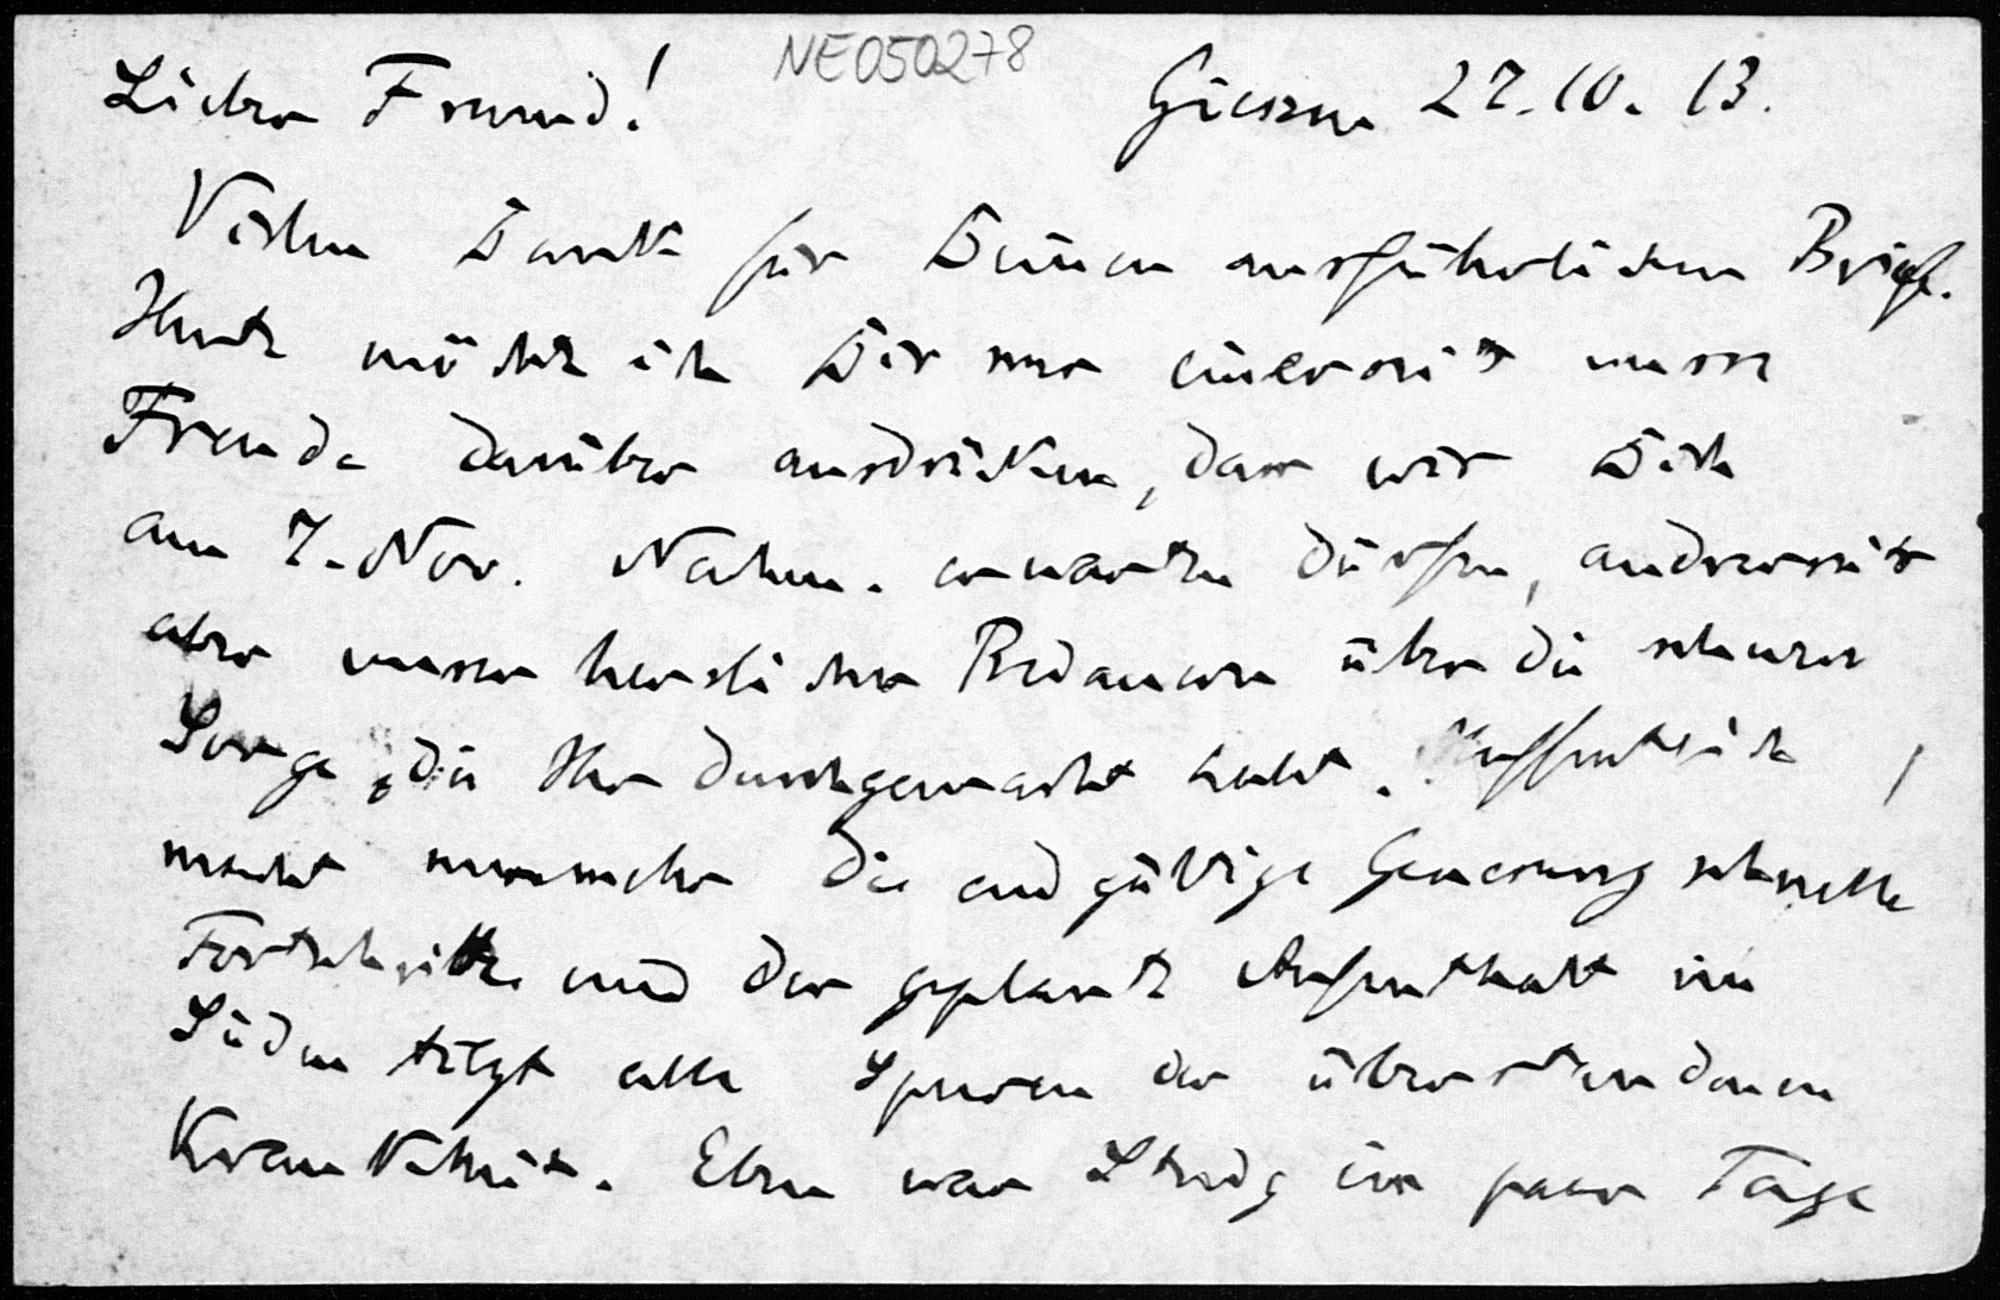 NE050278
Lieber Freund! Giessen 27.10.13.
Vielen Dank für Deinen ausführlichen Brief.
Heute möchte ich Dir nur einerseits unsre
Freude darüber ausdrücken, dass wir Dich
am 7. Nov. Nachm. erwarten dürfen, andrerseits
aber unser herzliches Bedauern über die schwere
Sorge, die Ihr durchgemacht habt. Hoffentlich
macht nunmehr die endgültige Genesung schnelle
Fortschritte und der geplante Aufenthalt im
Süden tilgt alle Spuren der überstandenen
Krankheit. Eben war ein paar Tage